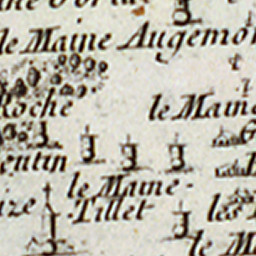 le Maine Augemo
Roche
le Maine
entin
le Maine-
Tillet
ize
les
le M